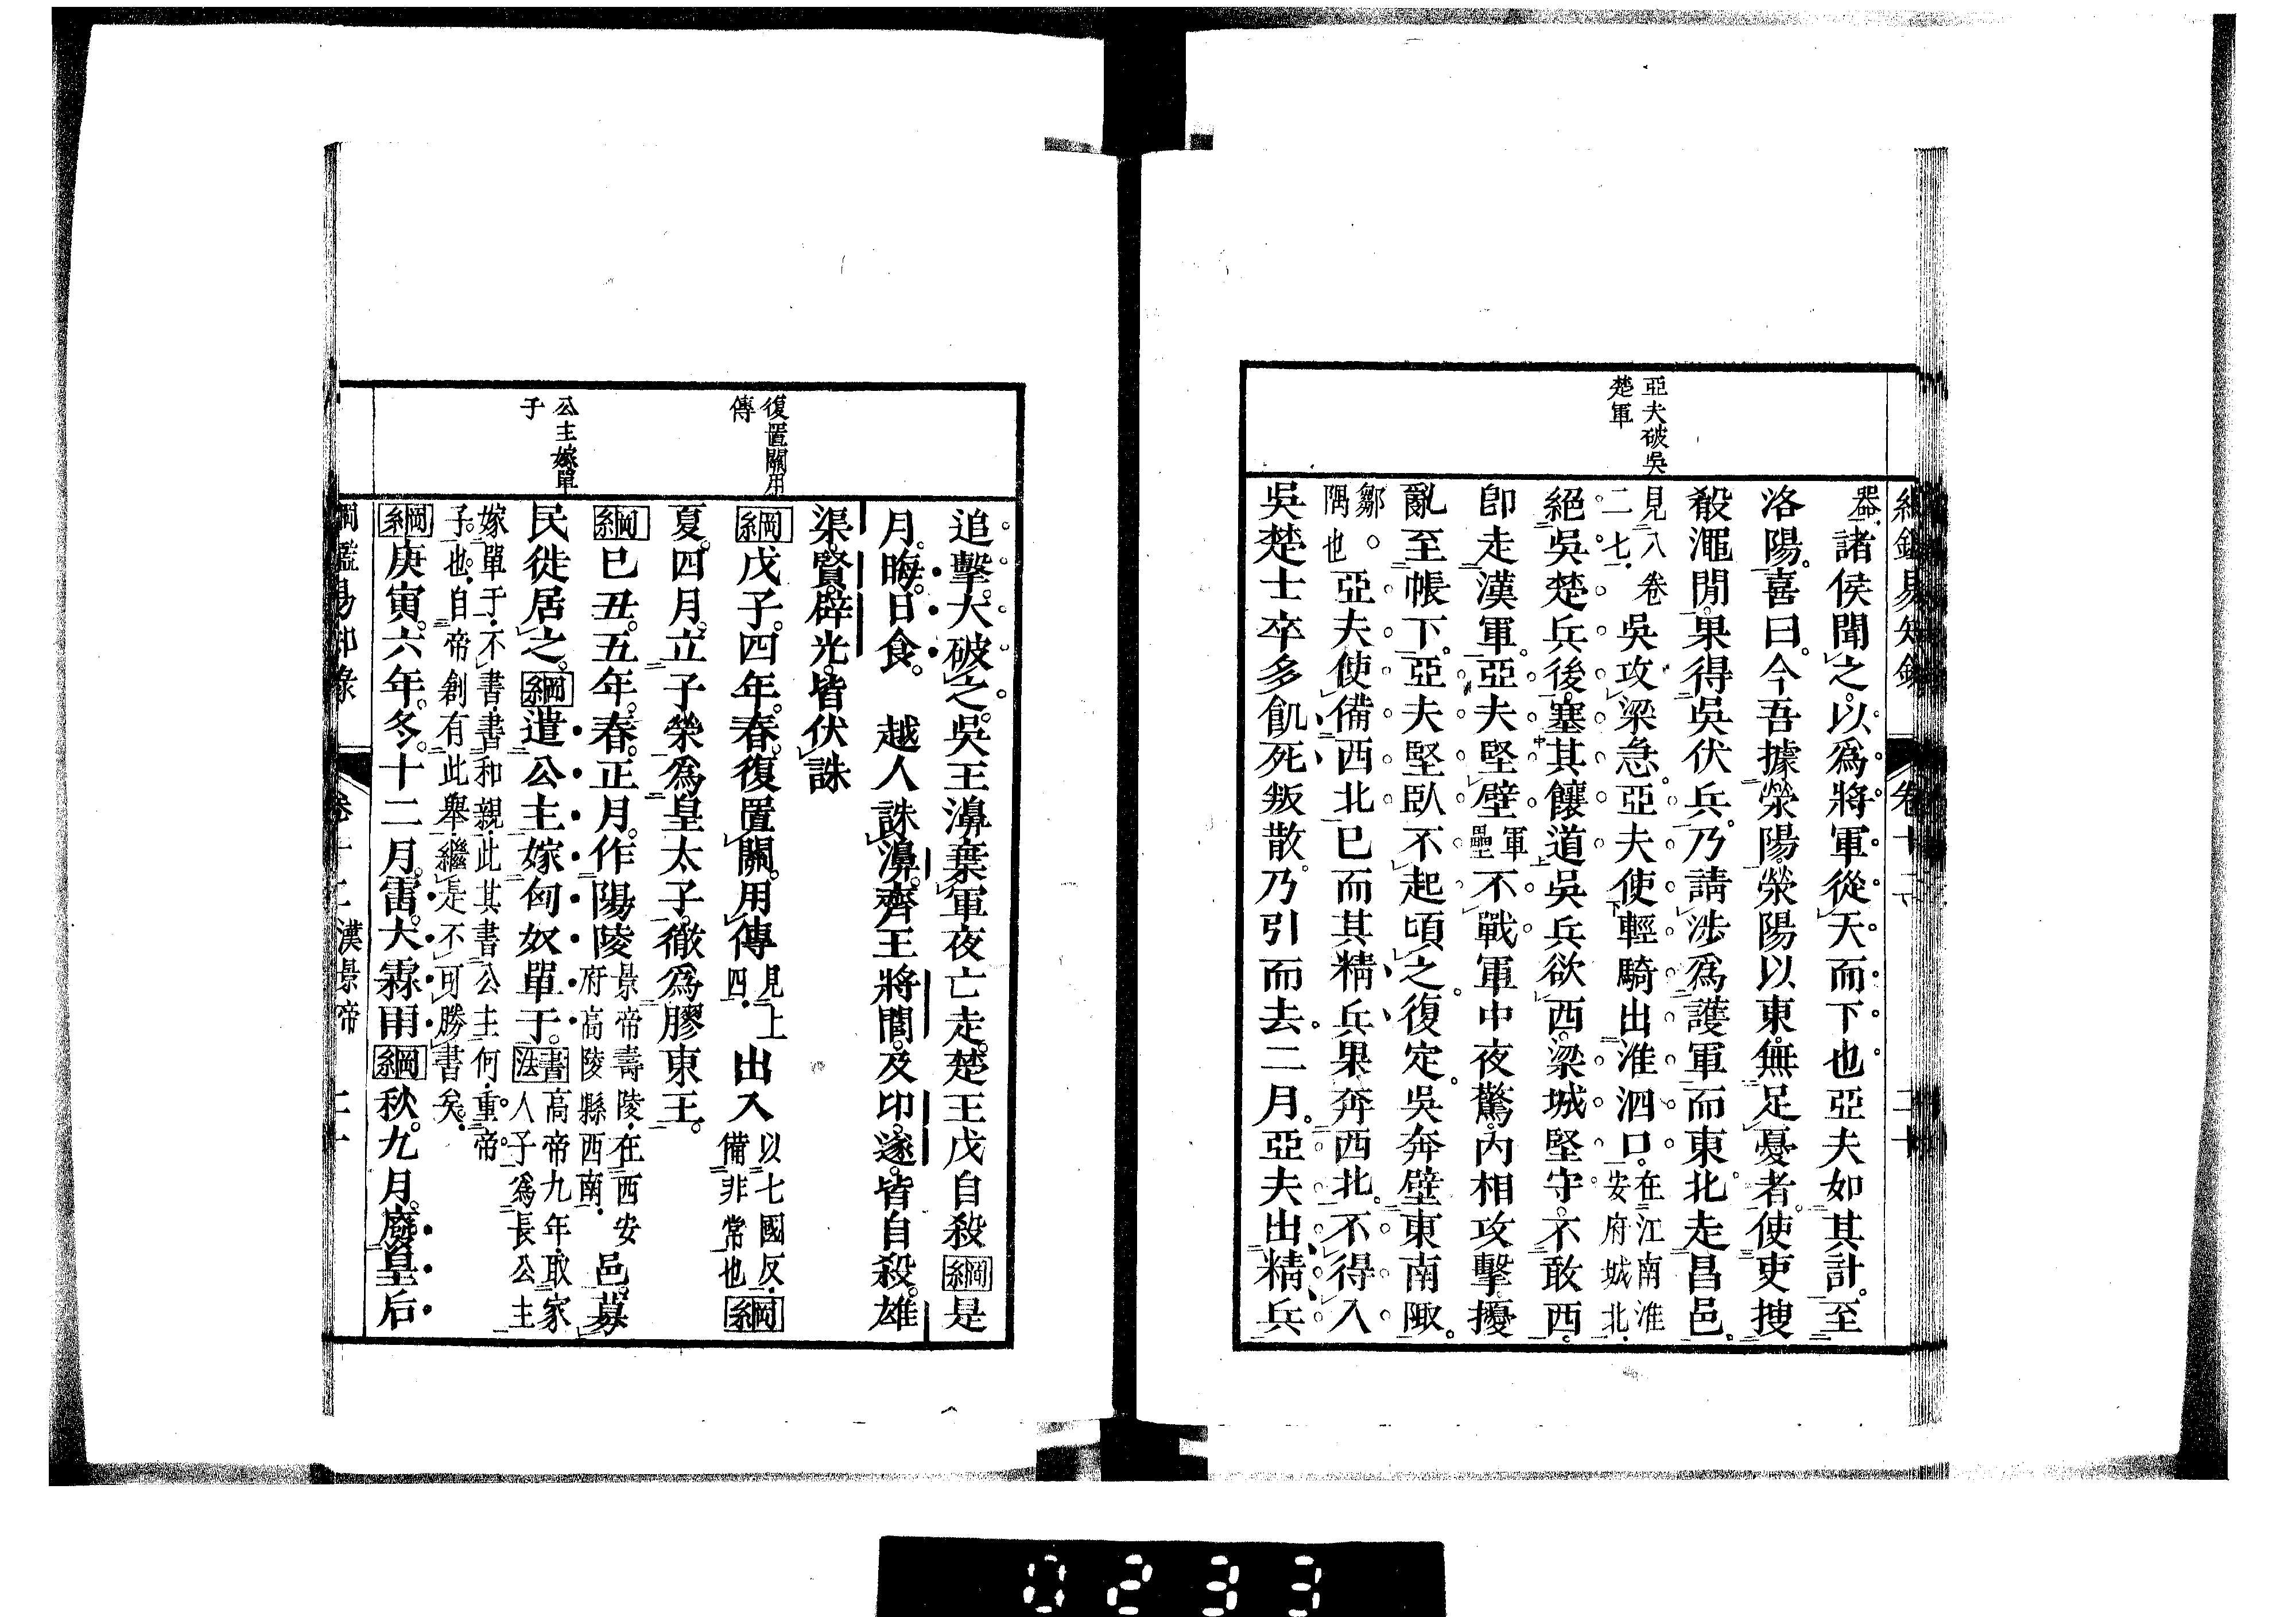 亞夫破吳
楚軍
器諸侯聞之以爲將軍從天而下也亞夫如其計至
洛陽喜曰今吾據滎陽滎陽以東無足憂者使吏搜
殽澠閒果得吳伏兵乃請涉爲護軍而東北走昌邑
見八卷
二七
吳攻梁急亞夫使輕騎出淮泗口
在江南淮
安府城北
絕吳楚兵後塞其饟道吳兵欲西梁城堅守不敢西
卽走漢軍亞夫堅壁
軍
壘
不戰軍中夜驚內相攻擊擾
亂至帳下亞夫堅臥不起頃之復定吳奔壁東南陬
鄒
隅也
亞夫使備西北已而其精兵果奔西北不得入
吳楚士卒多飢死叛散乃引而去二月亞夫出精兵
復置關用
傳
公主嫁單
子
追擊大破之吳王濞棄軍夜亡走楚王戊自殺綱是
月晦日食 越人誅濞齊王將閭及卬遂皆自殺雄
渠賢辟光皆伏誅
綱戊子四年春復置關用傳
見上
四
出入
以七國反
備非常也
綱
夏四月立子榮爲皇太子徹爲膠東王
綱巳丑五年春正月作陽陵
景帝壽陵在西安
府高陵縣西南
邑募
民徙居之綱遣公主嫁匈奴單于
書高帝九年取家
法人子爲長公主
嫁單于不書書和親此其書公主何重帝
子也自帝創有此舉繼是不可勝書矣
綱庚寅六年冬十二月雷大霖雨綱秋九月廢皇后
綱鑑易知錄 卷十二 漢景帝 二十
0233